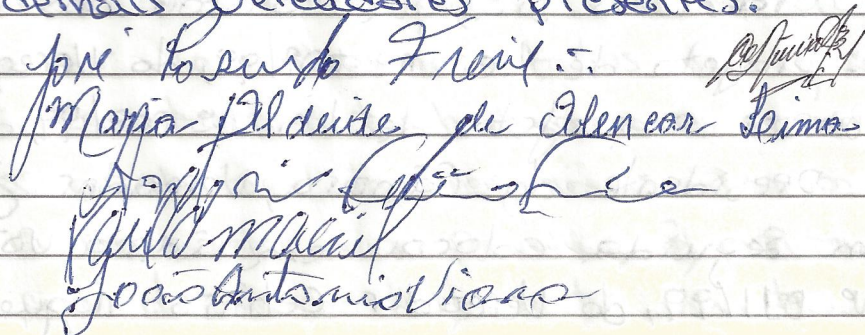 demais Vereadores presentes.
José Rosendo Freire.
Maria Aldeide de Alencar Leima
Antonio
Paulo Maciel
João Antonio Viana